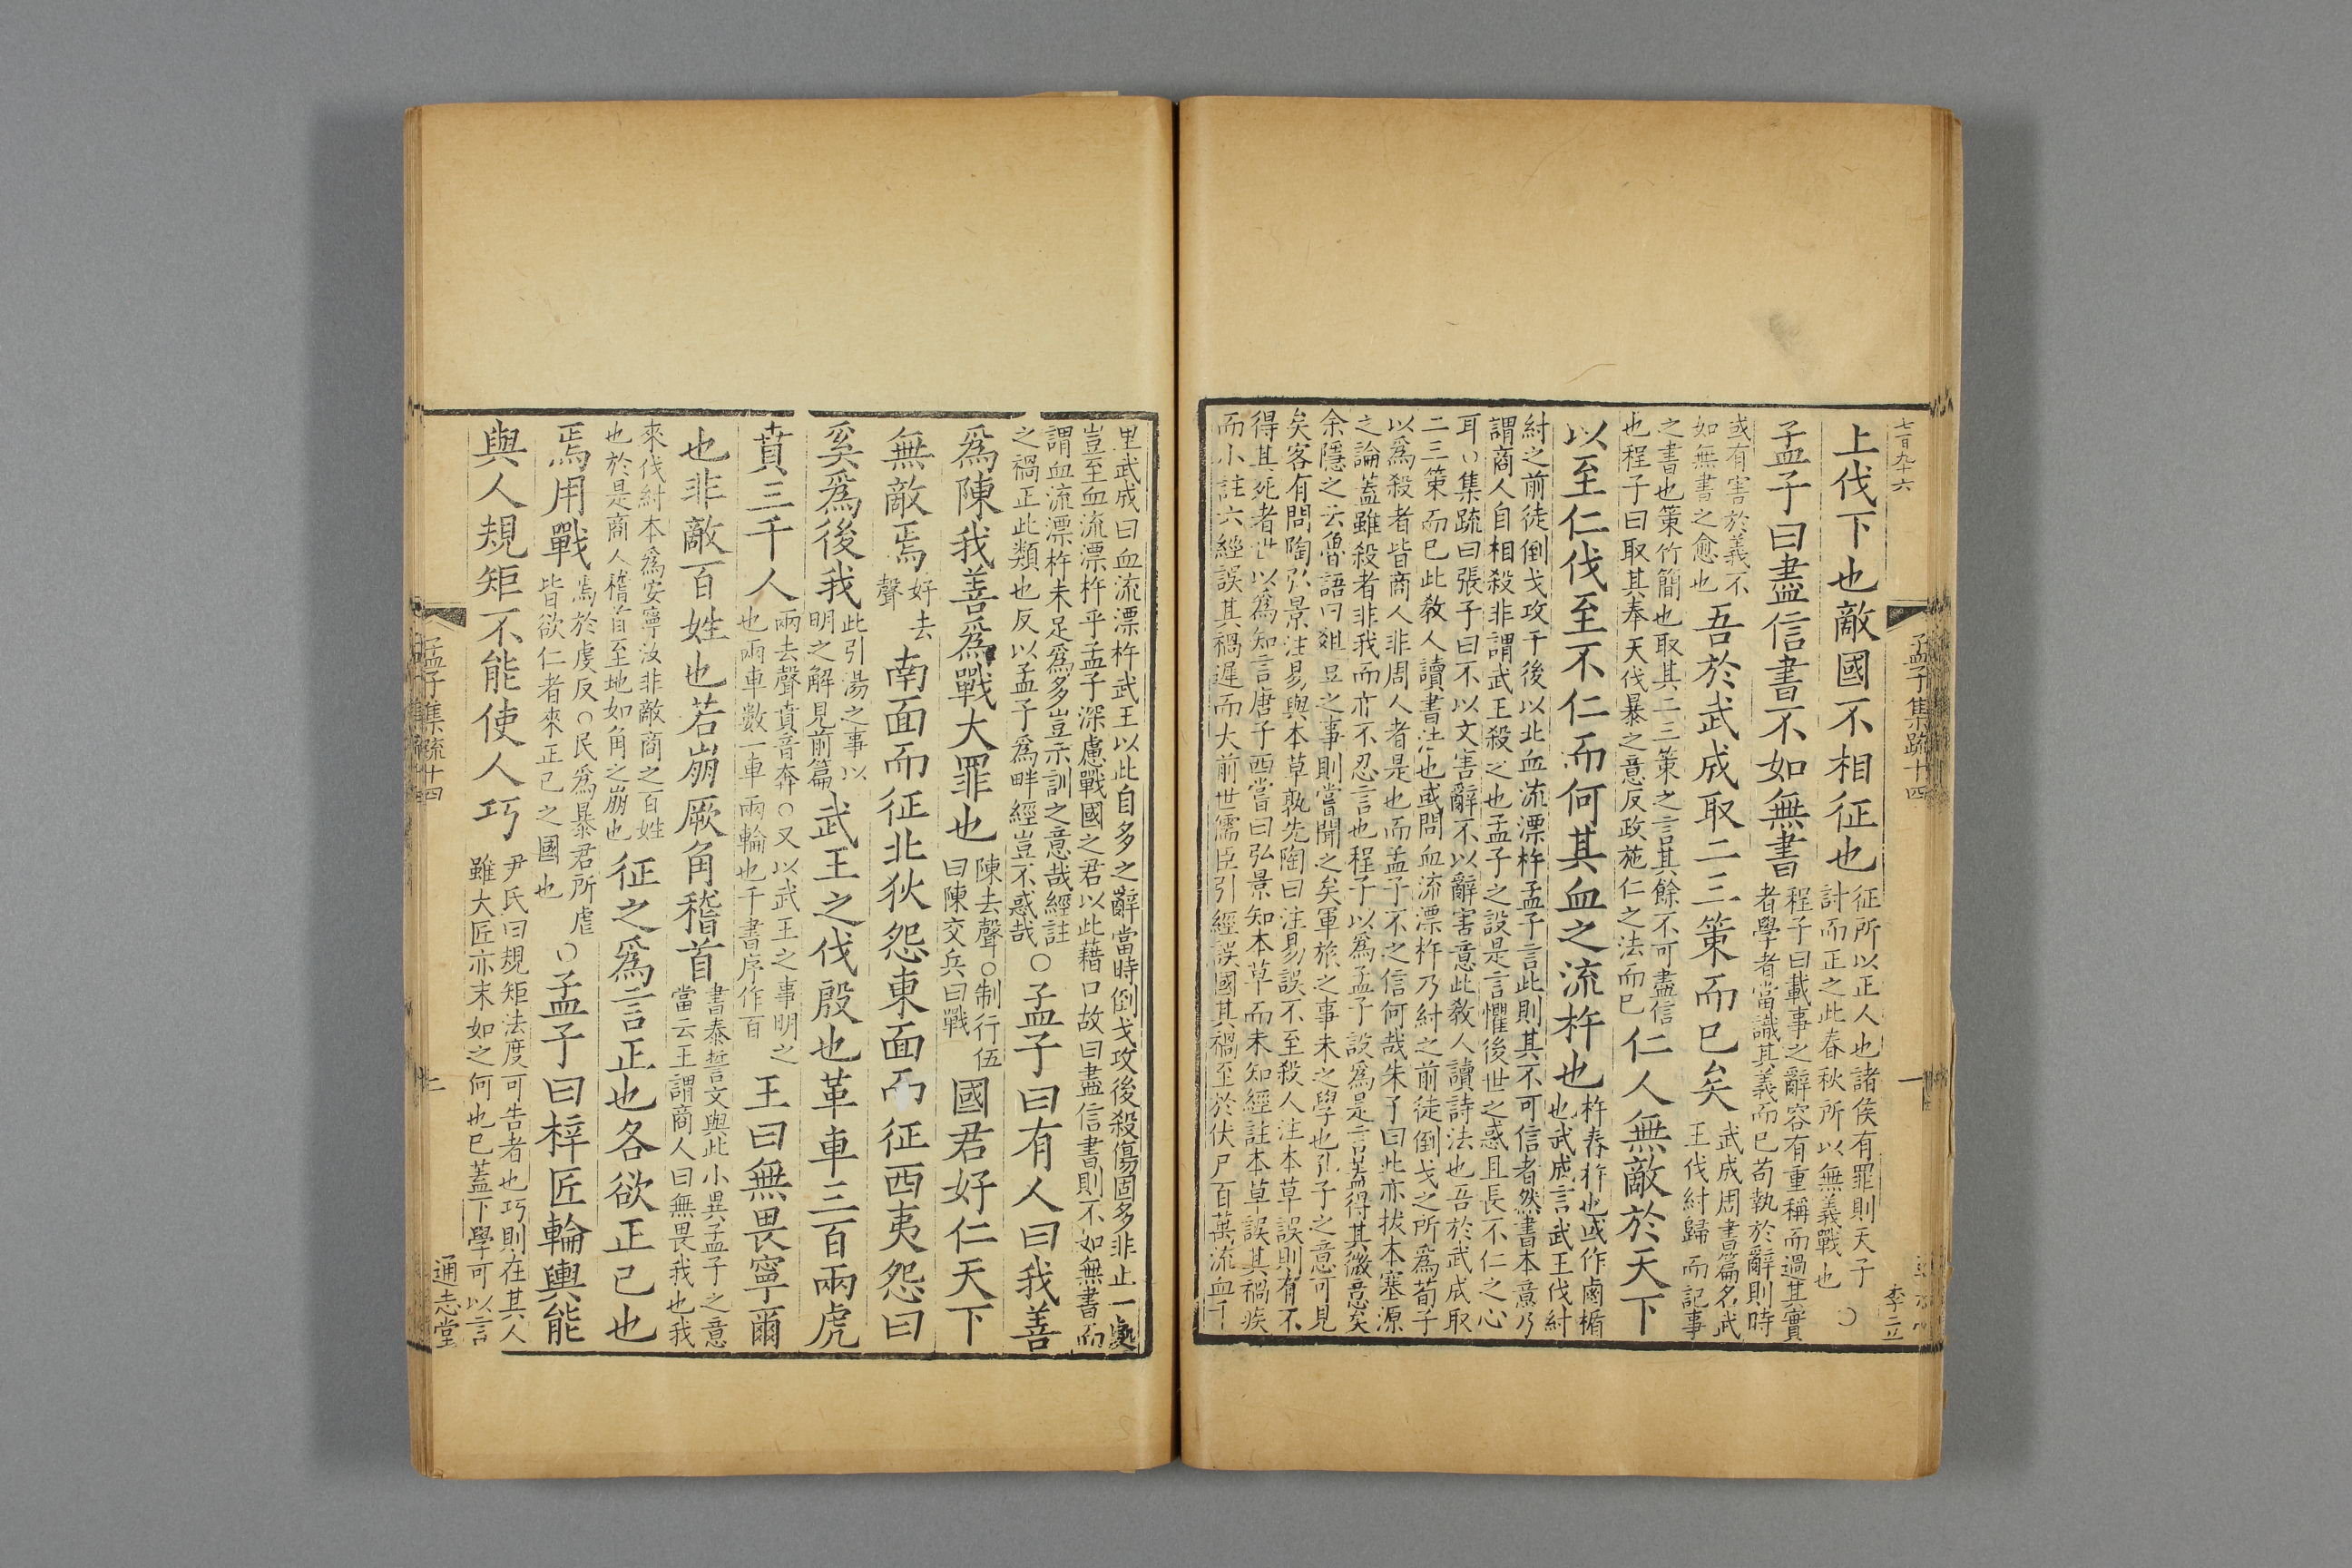 七百九十六
孟子集疏十四
一
李立
上伐下也敵國不相征也征所以正人也諸侯有罪則天子
討而正之此春秋所以無義戰也〇
孟子曰盡信書不如無書程子曰載事之辭容有重稱而過其實
者學者當識其義而已苟執於辭則時
或有害於義不
如無書之愈也吾於武成取二三策而已矣武成周書篇名武
王伐紂歸而記事
之書也策竹簡也取其二三策之言其餘不可盡信
也程子曰取其奉天伐暴之意反政施仁之法而已仁人無敵於天下
以至仁伐至不仁而何其血之流杵也杵舂杵也或作鹵楯
也武成言武王伐紂
紂之前徒倒戈攻于後以北血流漂杵孟子言此則其不可信者然書本意乃
謂商人自相殺非謂武王殺之也孟子之設是言懼後世之惑且長不仁之心
耳〇集疏曰張子曰不以文害辭不以辭害意此教人讀詩法也吾於武成取
二三策而已此教人讀書法也或問血流漂杵乃紂之前徒倒戈之所爲荀子
以爲殺者皆商人非周人者是也而孟子不之信何哉朱子曰此亦拔本塞源
之論蓋雖殺者非我而亦不忍言也程子以爲孟子設爲是言蓋得其微意矣
余隱之云魯語曰俎豆之事則嘗聞之矣軍旅之事未之學也孔子之意可見
矣客有問陶弘景注易與本草孰先陶曰注易誤不至殺人注本草誤則有不
得其死者世以爲知言唐子西嘗曰弘景知本草而未知經註本草誤其禍疾
而小註六經誤其禍遲而大前世儒臣引經誤國其禍至於伏尸百萬流血千
里武成曰血流漂杵武王以此自多之辭當時倒戈攻後殺傷固多非止一處
豈至血流漂杵乎孟子深慮戰國之君以此藉口故曰盡信書則不如無書而
謂血流漂杵未足爲多豈示訓之意哉經註
之禍正此類也反以孟子爲畔經豈不惑哉〇孟子曰有人曰我善
爲陳我善爲戰大罪也陳去聲〇制行伍
曰陳交兵曰戰國君好仁天下
無敵焉好去
聲南面而征北狄怨東面而征西夷怨曰
奚爲後我此引湯之事以
明之解見前篇武王之伐殷也革車三百兩虎
賁三千人兩去聲賁音奔〇又以武王之事明之
也兩車數一車兩輪也千書序作百王曰無畏寧爾
也非敵百姓也若崩厥角稽首書泰誓文與此小異孟子之意
當云王謂商人曰無畏我也我
來伐紂本爲安寧汝非敵商之百姓
也於是商人稽首至地如角之崩也征之爲言正也各欲正己也
焉用戰焉於虔反〇民爲暴君所虐
皆欲仁者來正己之國也〇孟子曰梓匠輪輿能
與人規矩不能使人巧尹氏曰規矩法度可告者也巧則在其人
雖大匠亦末如之何也已蓋下學可以言
孟子集疏十四
二
通志堂